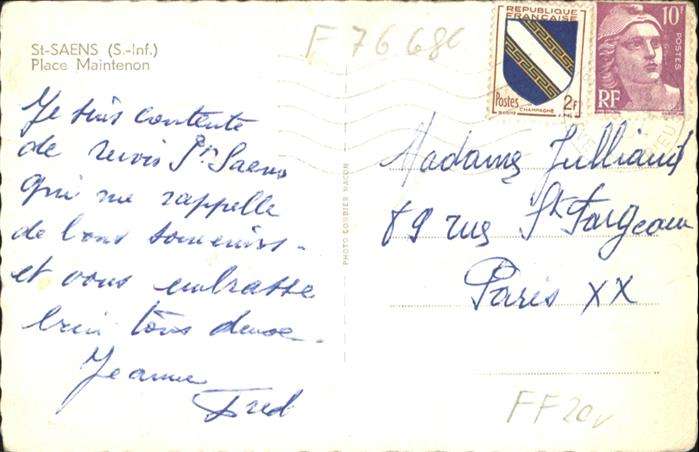 St-SAENS (S.-Inf.)
Place Maintenon
F 76680
REPUBLIQUE
FRANÇAISE
Postes 2F
CHAMPAGNE
10F
POSTES
RF
Je suis contente
de revoir St Saens
qui me rappelle
de bons souvenirs -
et vous embrasse
bien tous deux -
Jeanne
Fred
PHOTO COMBIER MACON
Madame Julliand
89 rue St Fargeau
Paris XX
FF20